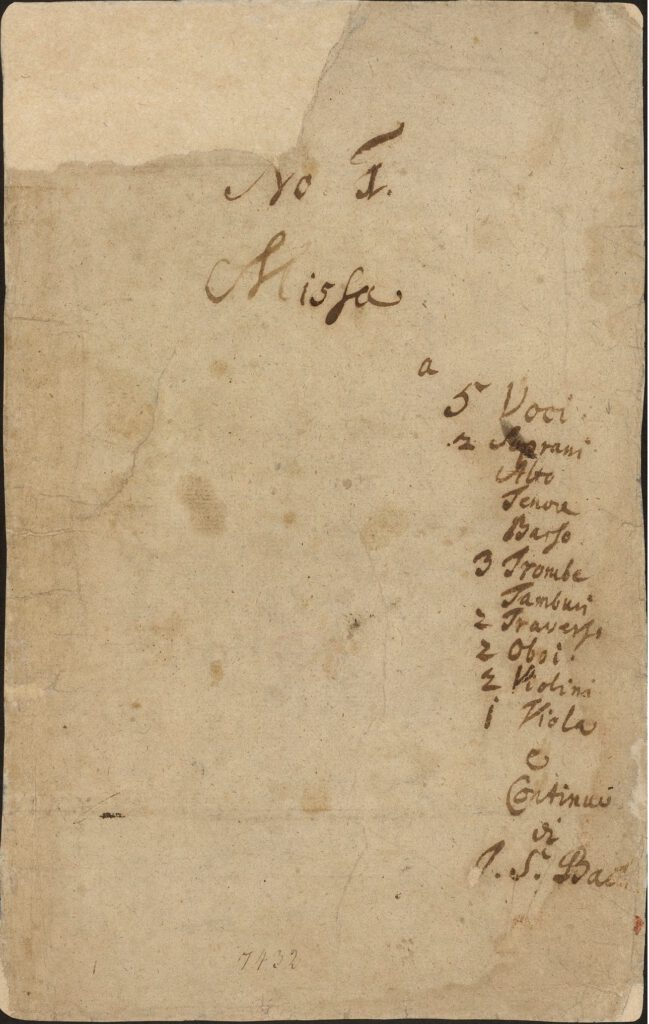 No I.
Missa
a
5 Voci.
2 Soprani
Alto
Tenore
Basso.
3 Trombe
Tamburi
2 Traversi
2 Oboi.
2 Violini
1 Viola
e
Continui
di
J. S. Bach
7432